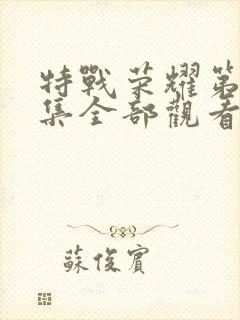 特戰荣耀第
集全部觀看
蘇俊賓